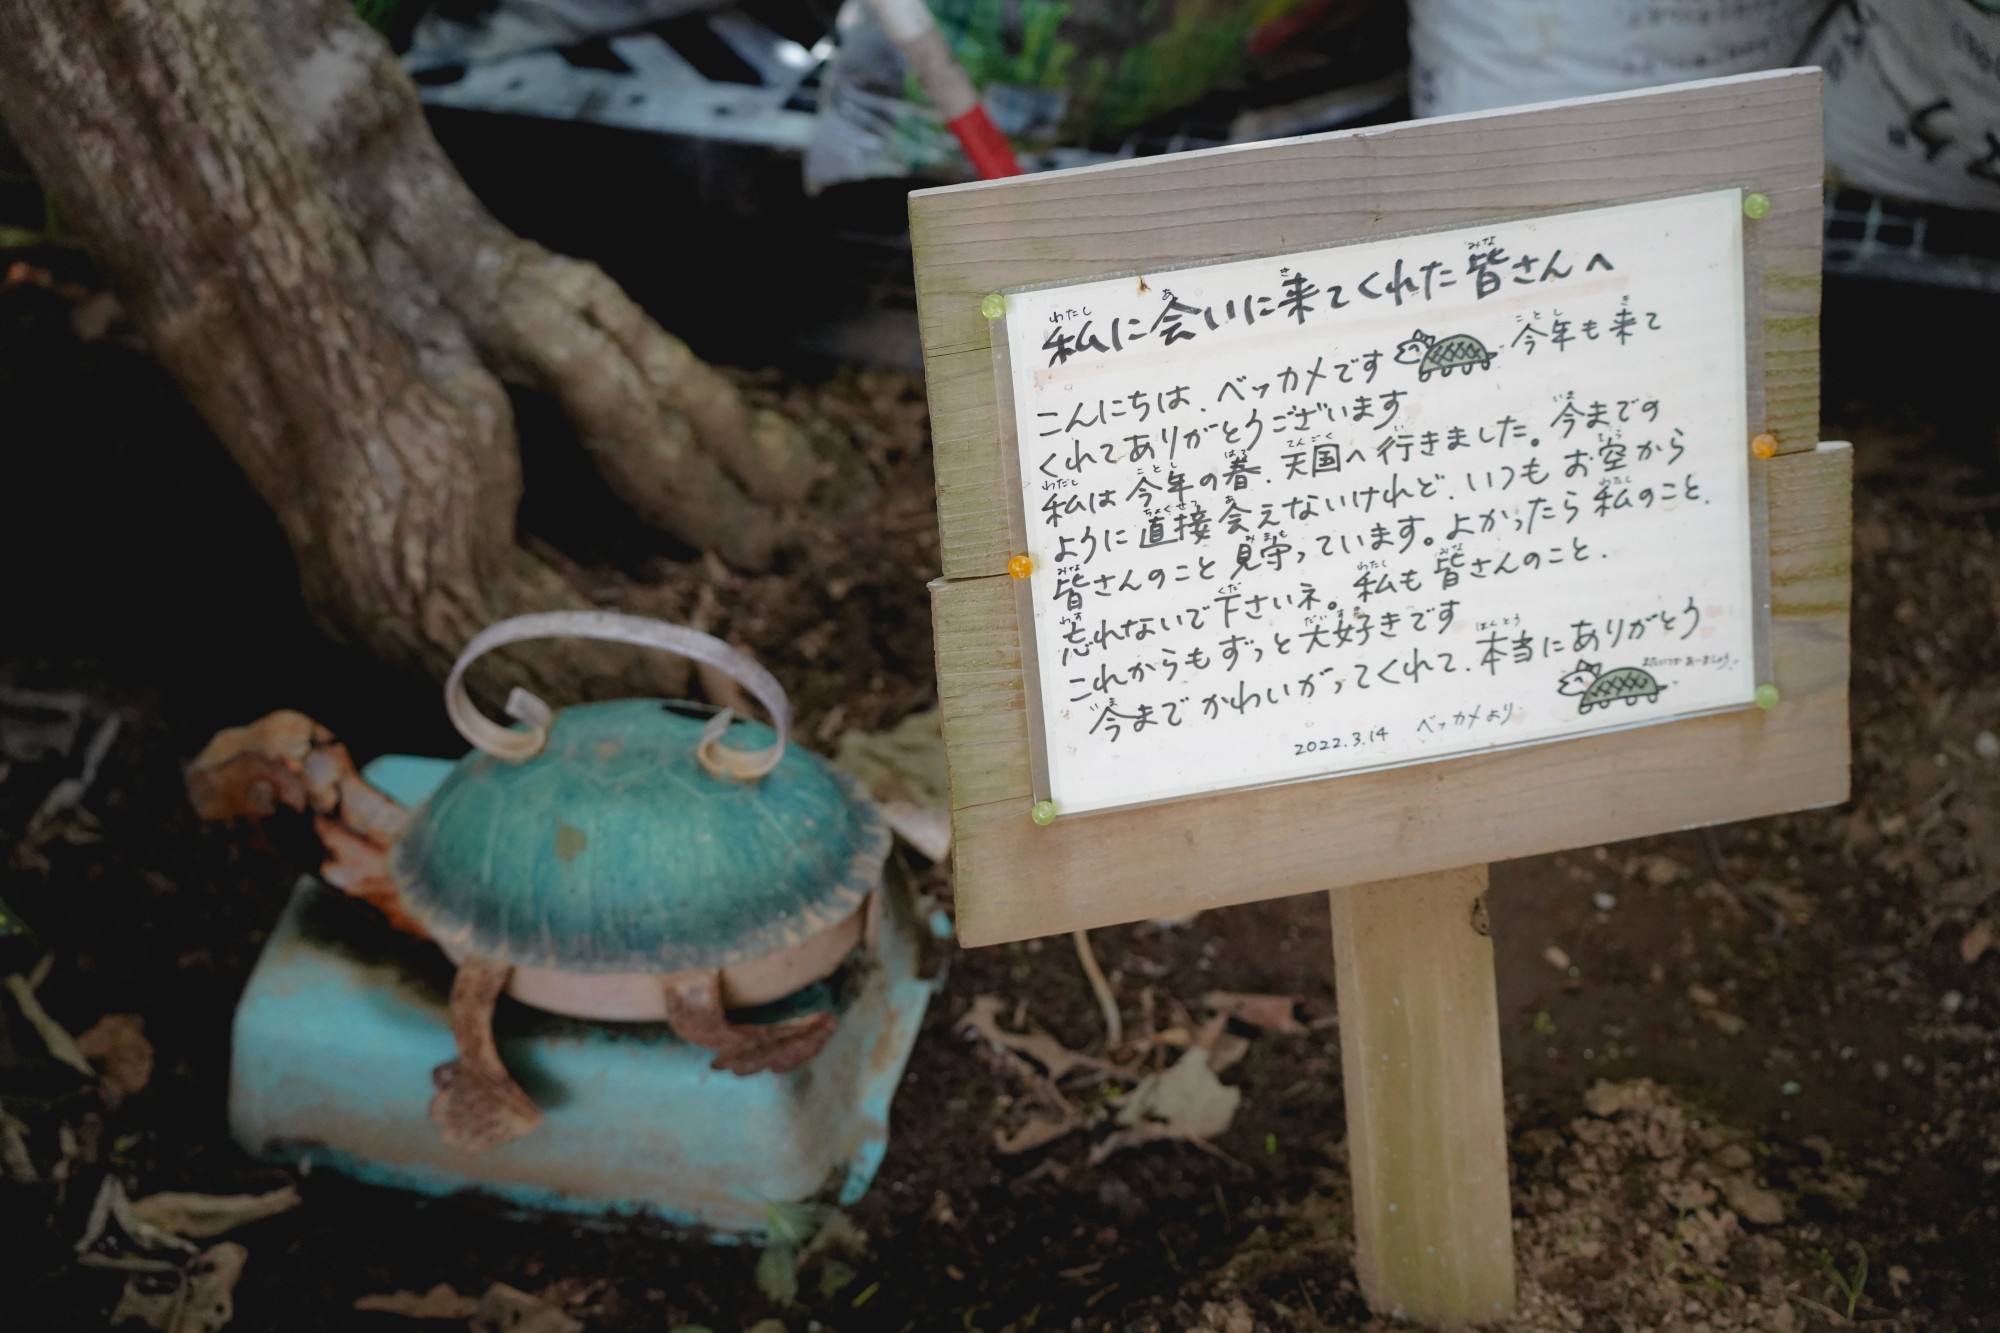 私に会いに来てくれた皆さんへ
こんにちは、ベッカメです 今年も来て
くれてありがとうございます
私は今年の春、天国へ行きました。今までの
ように直接会えないけれど、いつもお空から
皆さんのこと見守っています。よかったら私のこと、
忘れないで下さいネ。私も皆さんのこと、
これからもずっと大好きです
今までかわいがってくれて、本当にありがとう
またいつかあいましょう。
2022.3.14 ベッカメより